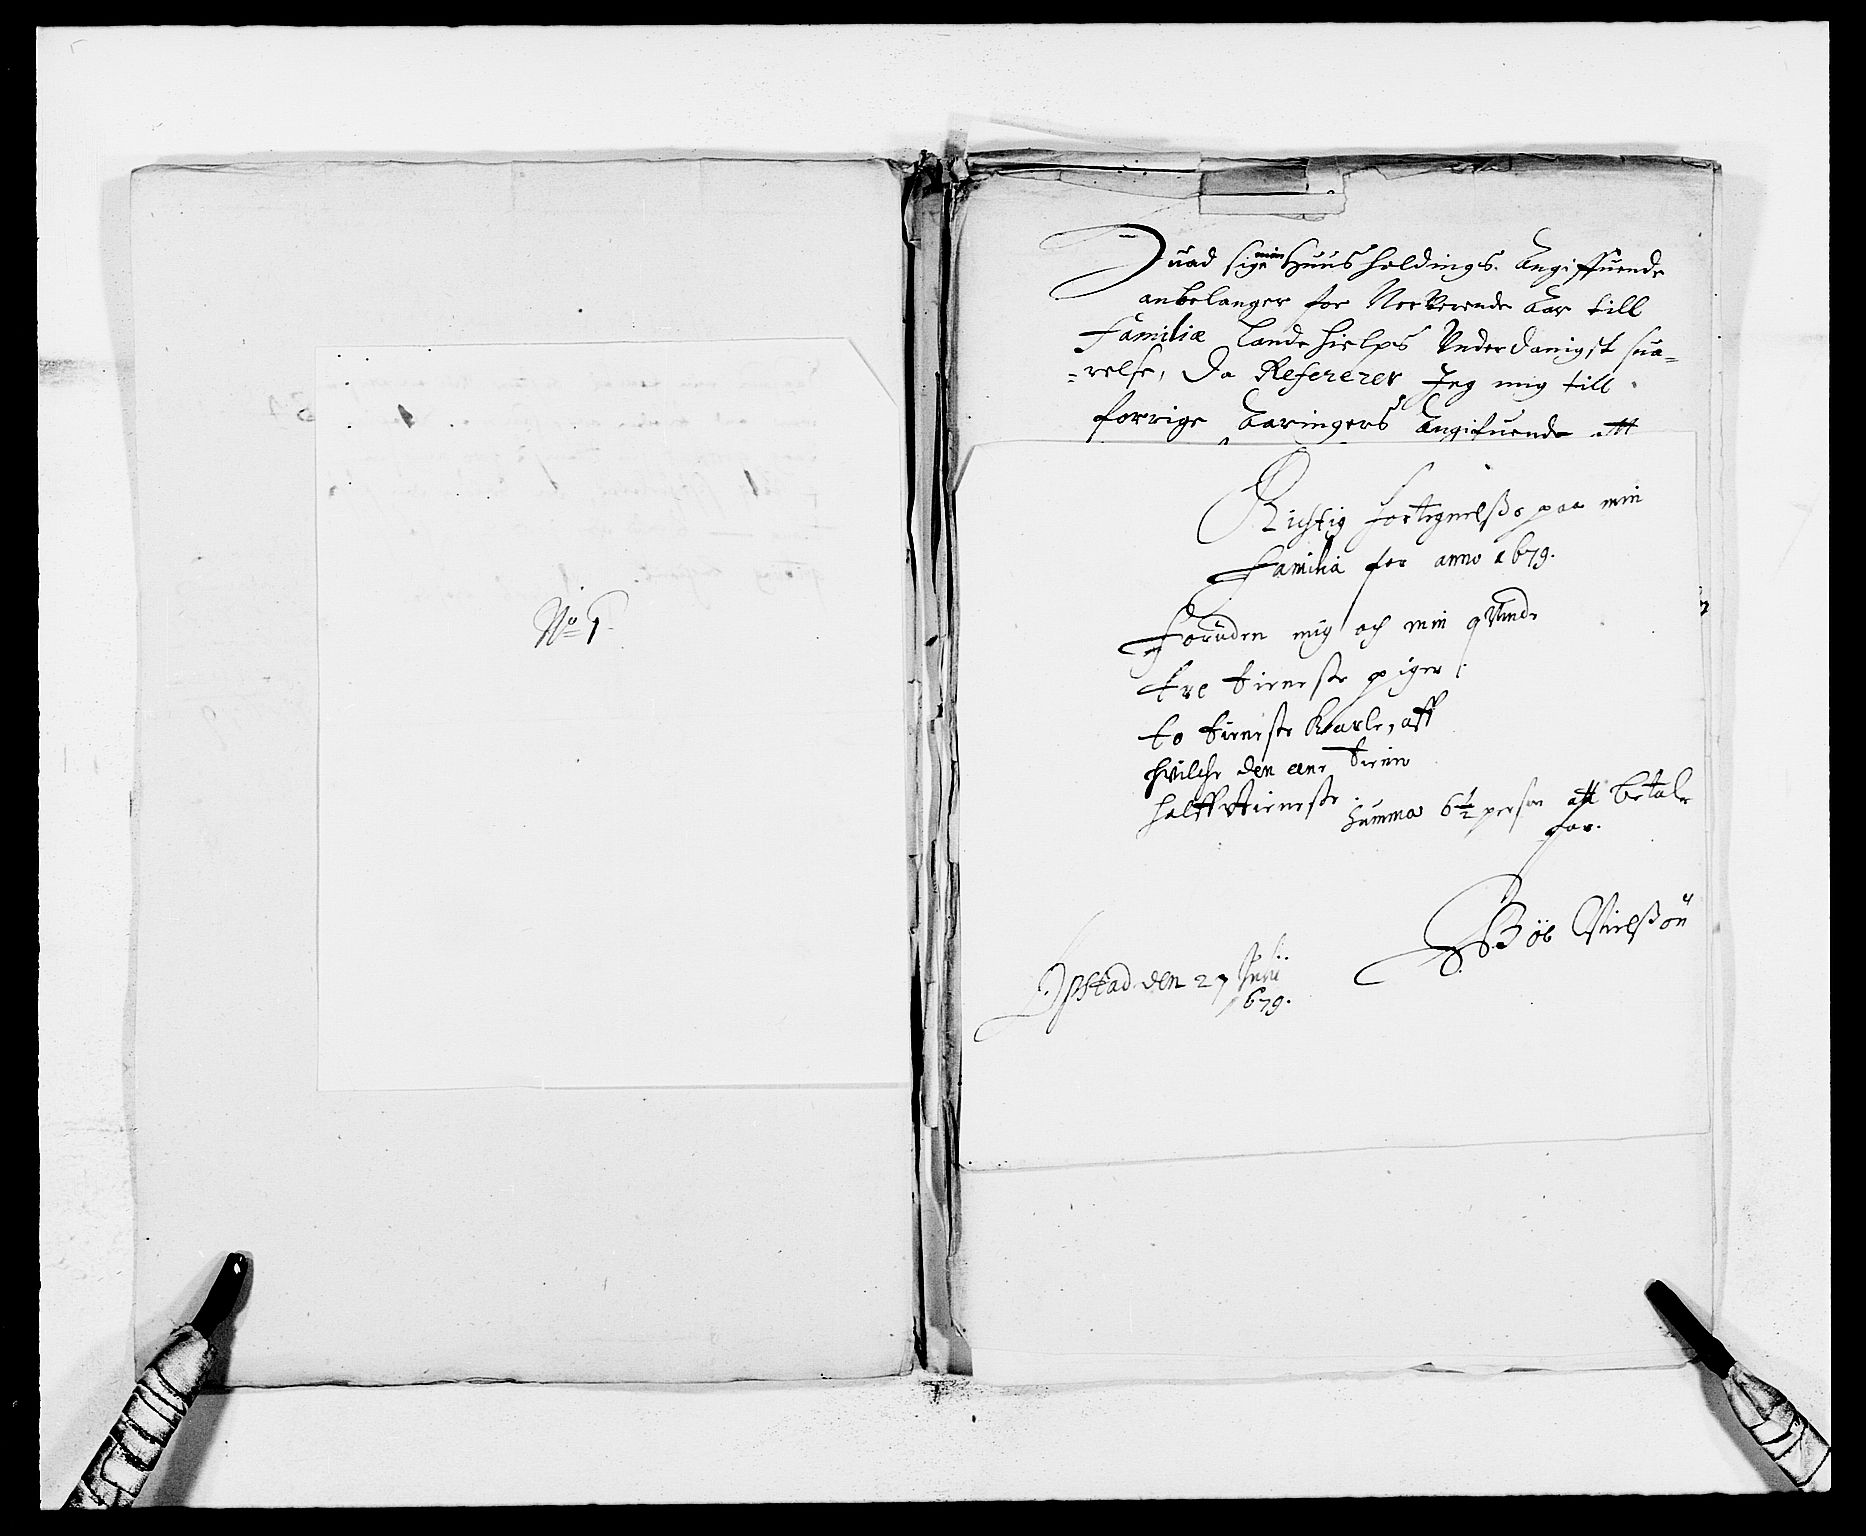 No 1
Huad sig min Huusholdings Angiffuende
anbelanger for Neruerende Aar till
Familiæ Lande hielps Underdanigst sua=
=relse, Da Refererer Jeg mig till
forrige Aaringers Angifuende att
Richtig fortegnelsße paa min
Familia for anno 1679.
Foruden mig och min qvinde
tre tieniste piger
to tieniste Karle, aff
hvilche den ene tiener
halff tieniste
Summa 6 1/2 person att betale
for.
Nielsßøn
Opstad den 27 Juli
1679.